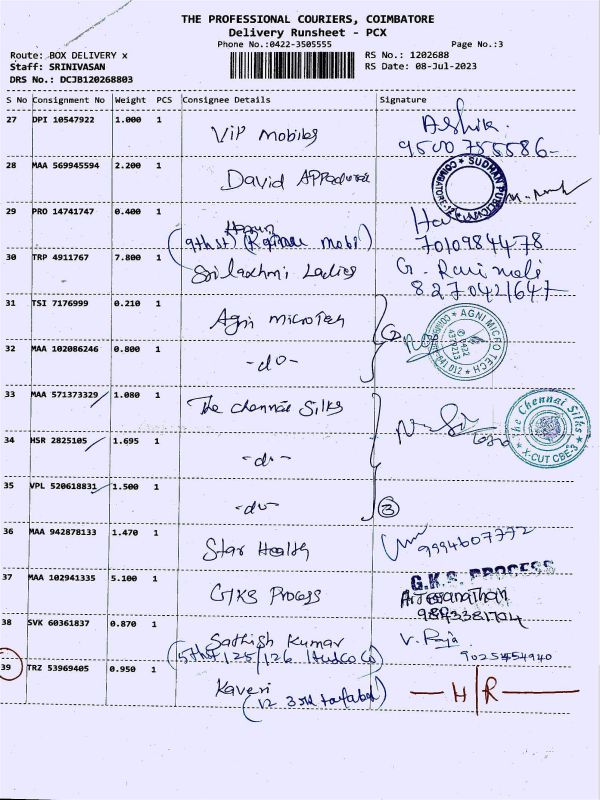 THE PROFESSIONAL COURIERS, COIMBATORE
Delivery Runsheet - PCX
Phone No.:0422-3505555 Page No.:3
Route: BOX DELIVERY x RS No.: 1202688
Staff: SRNIVASAN RS Date: 08-Jul-2023
DRS No.: DCJB120268803
S No Consignment No Weight PCS Consignee Details Signature
27 DPI 10547922 1.000 1 VIP Mobiles Ashik
9500755586
28 MAA 569945594 2.200 1 David
29 PRO 14741747 0.400 1
(9th st) Mobi)
7010984478
30 TRP 4911767 7.800 1 Sri laxhmi Ladies G.
8270421647
31 TSI 7176999 0.210 1 Agni microTech
AGNI MICRO TECH
32 MAA 102086246 0.800 1 -do-
33 MAA 571373329 1.080 1 The chennai Silks
The Chennai Silks
X-CUT CBE-3
34 HSR 2825105 1.695 1 -do-
35 VPL 520618831 1.500 1 -do- 3
36 MAA 942878133 1.470 1 Star Health 9994607772
37 MAA 102941335 5.100 1 GKS Process G.K.S. PROCESS
9843381704
38 SVK 60361837 0.870 1 Sathish Kumar V. Raja
(5th st 125/126 Hudco Co)
39 TRZ 53969405 0.950 1 Kaveri H/R
(12 3rd